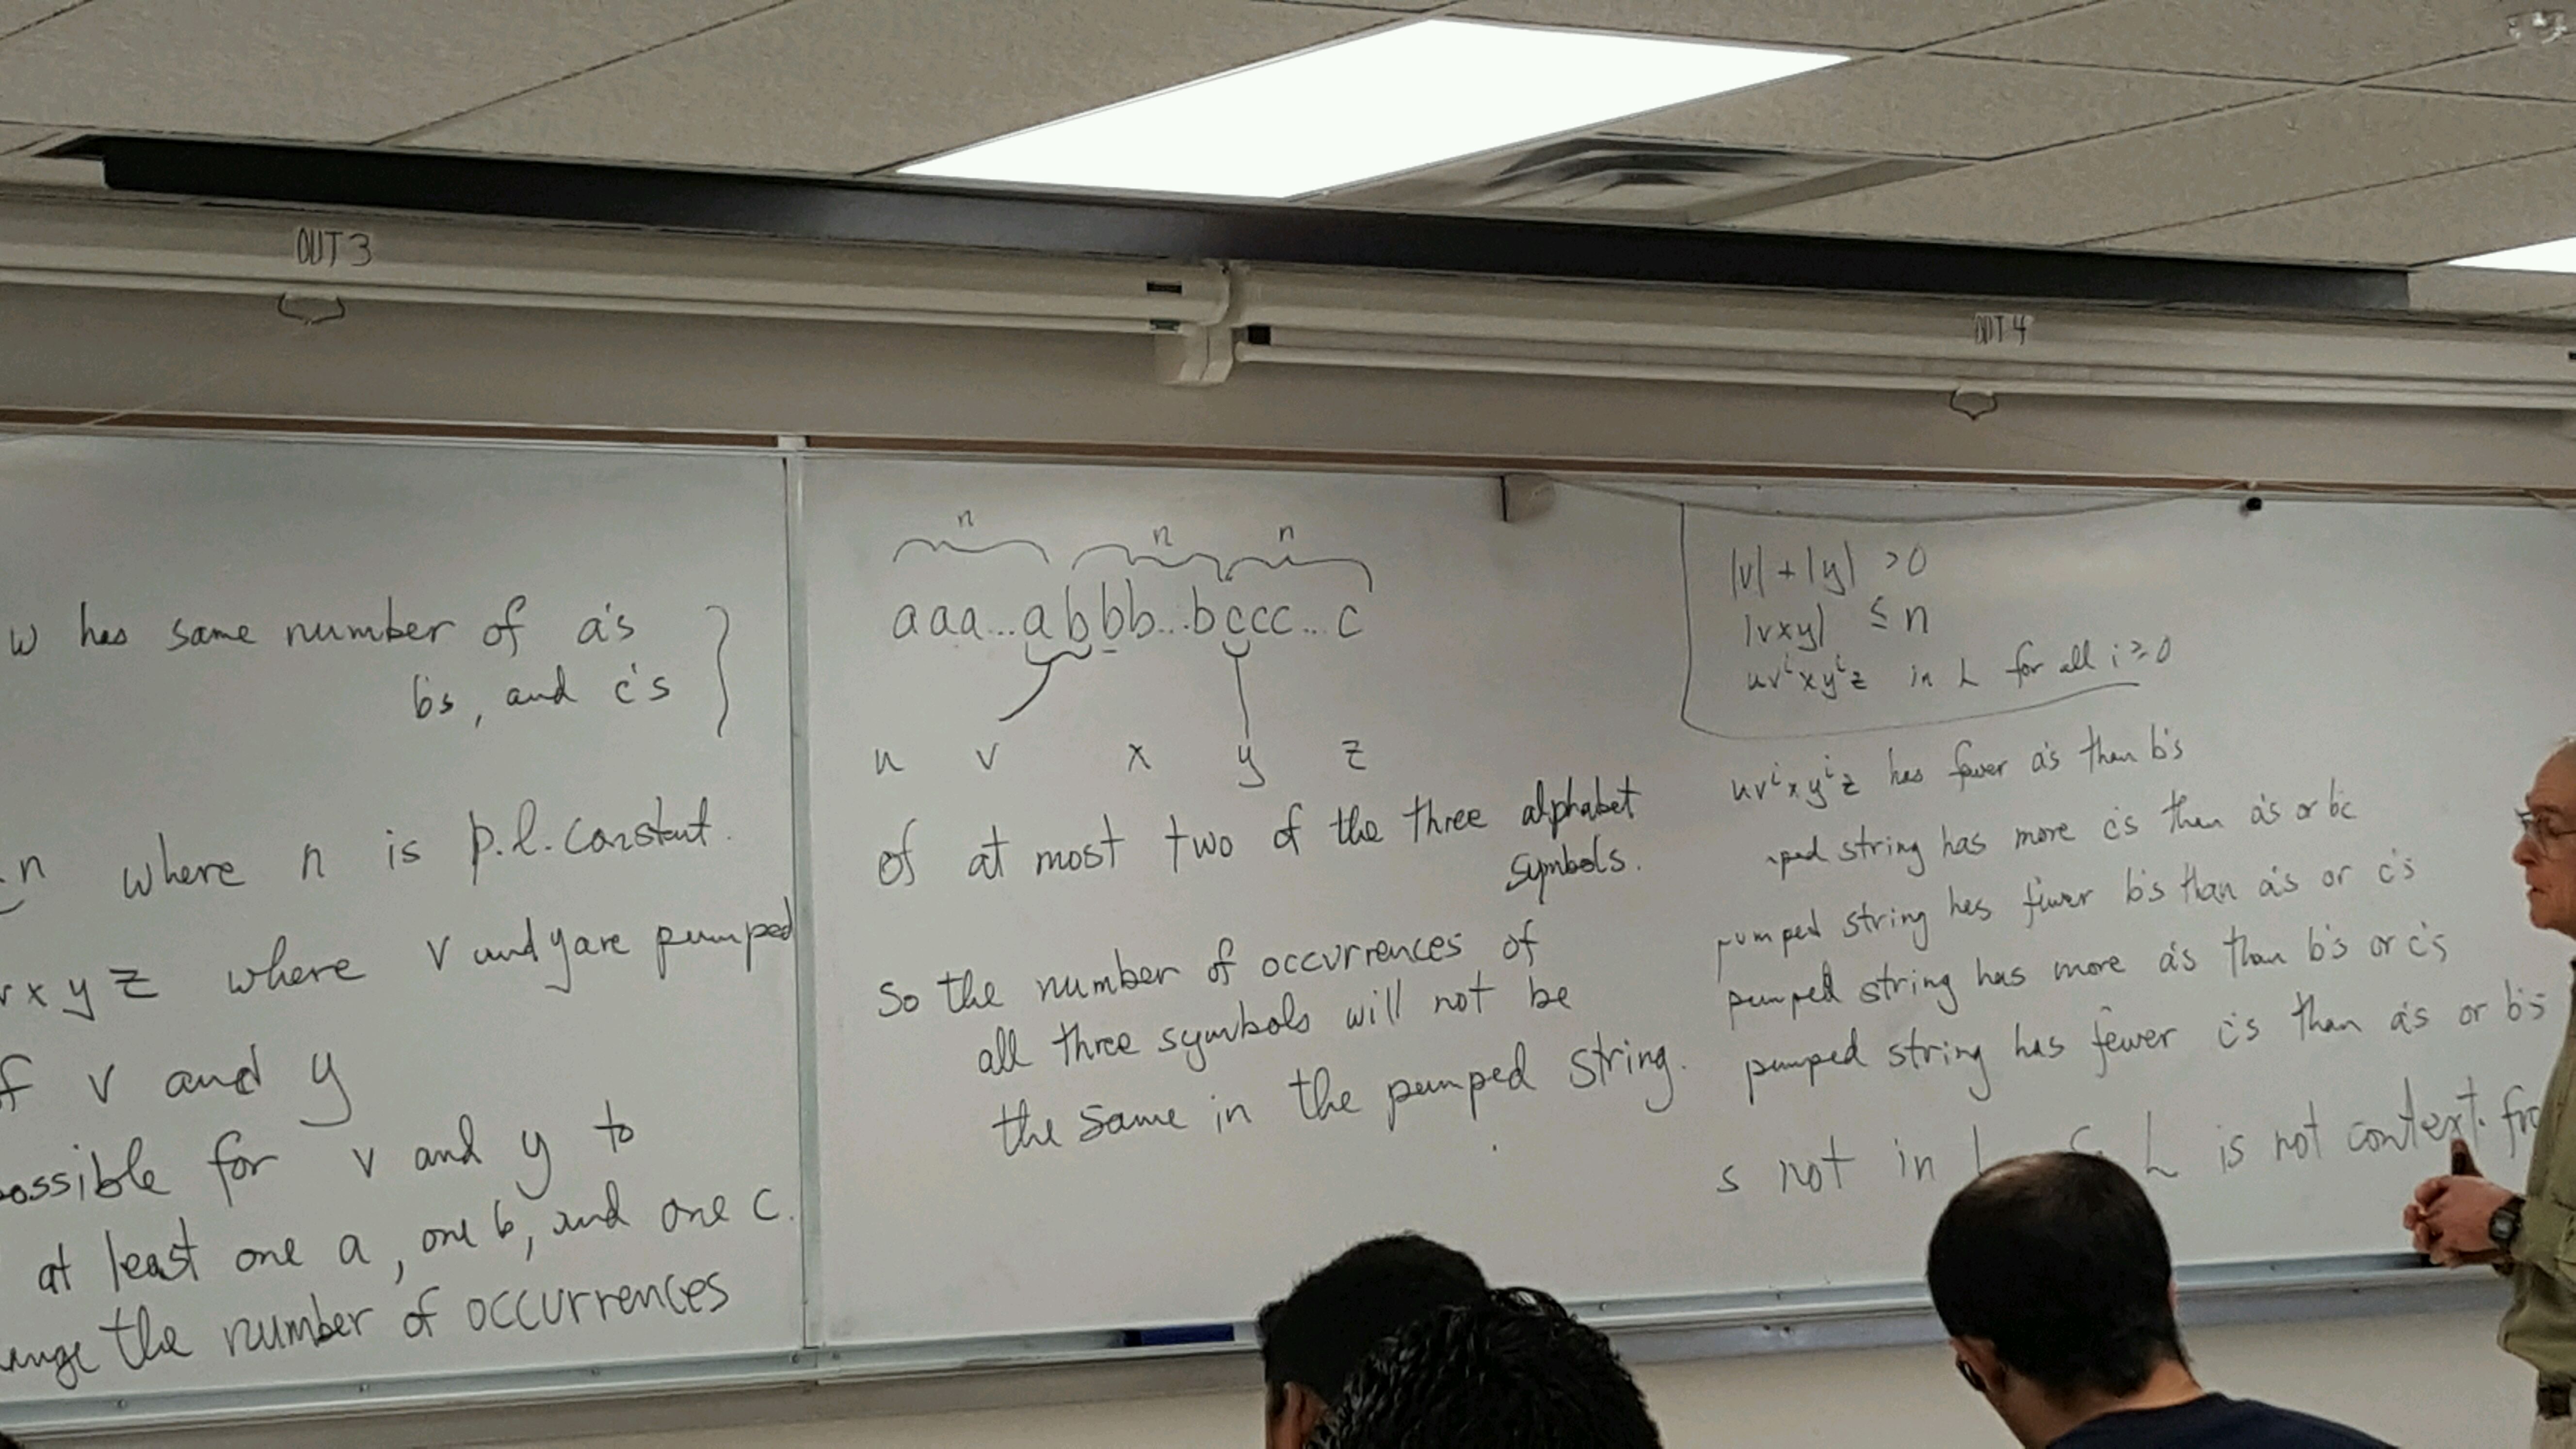 OUT 3
OUT 4
w has same number of a's
b's, and c's }
n where n is p.l. constant.
x y z where v and y are pumped
f v and y
ossible for v and y to
at least one a, one b, and one c.
ange the number of occurrences
n n n
aaa...abbb...bccc...c
u v x y z
of at most two of the three alphabet
symbols.
So the number of occurrences of
all three symbols will not be
the same in the pumped string.
|v| + |y| > 0
|vxy| ≤ n
uvⁱxyⁱz in L for all i ≥ 0
uvⁱxyⁱz has fewer a's than b's
ped string has more c's than a's or b
pumped string has fewer b's than a's or c's
pumped string has more a's than b's or c's
pumped string has fewer c's than a's or b's
s not in L is not context fr